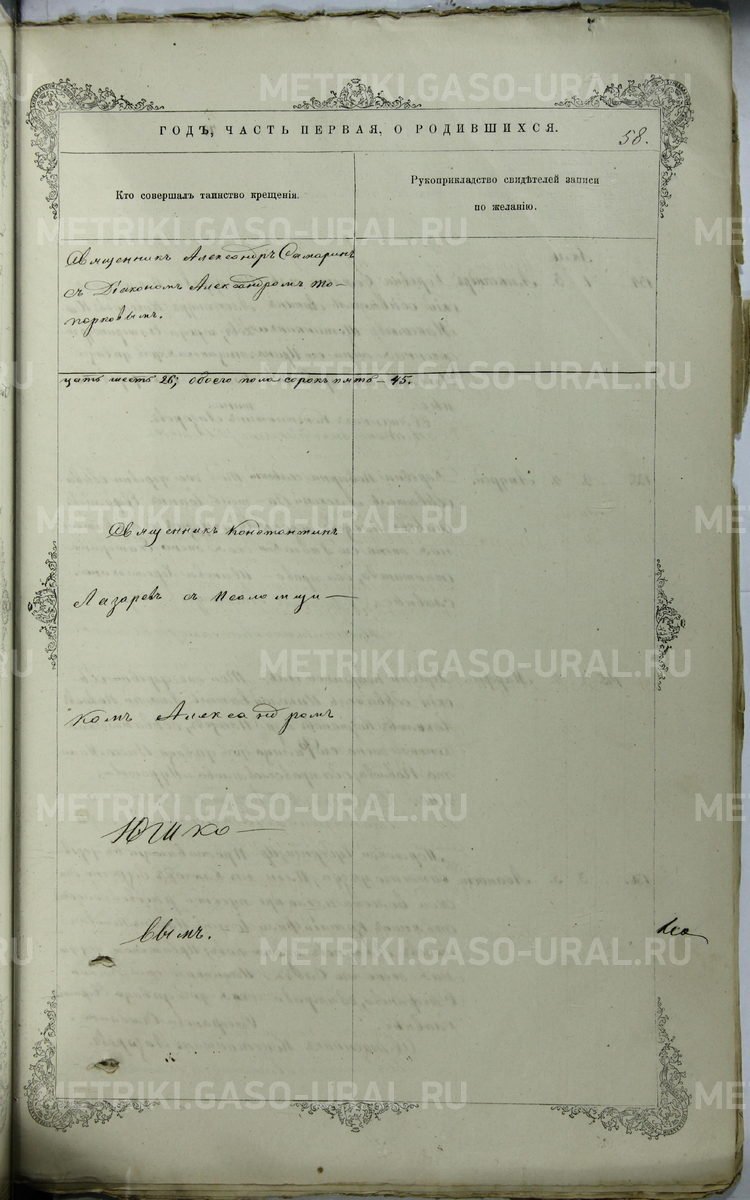 ГОДЪ, ЧАСТЬ ПЕРВАЯ, О РОДИВШИХСЯ.
58.
Кто совершалъ таинство крещенія.
Рукоприкладство свидѣтелей записи
по желанію.
Священникъ Александръ Самаринъ
съ Діакономъ Александромъ То-
порковымъ.
цать шесть 26; обоего пола сорокъ пять – 45.
Священникъ Константинъ
Лазаревъ съ Псаломщи-
комъ Александромъ
Юшко-
вымъ.
METRIKI.GASO-URAL.RU